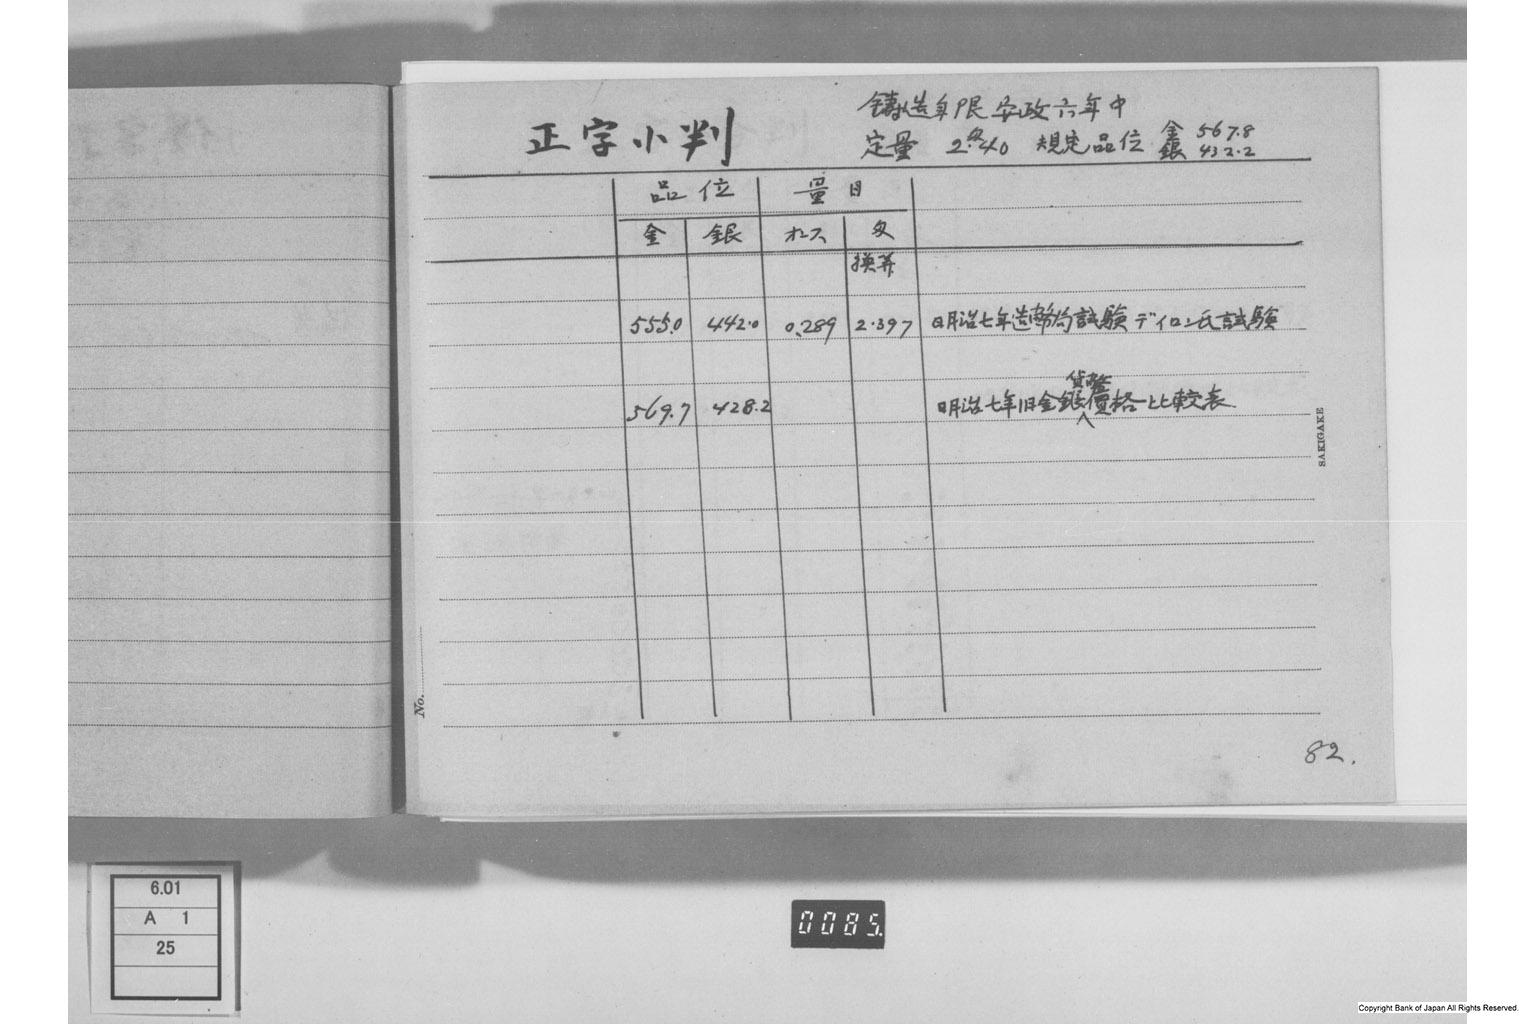 正字小判
鋳造年限 安政六年中
定量 2.匁40 規定品位 金 567.8
銀 432.2
品位 量目
金 銀 オンス 匁
換算
555.0 442.0 0.289 2.397 明治七年造幣局試験 ディロン氏試験
貨幣
569.7 428.2 明治七年旧金銀価格比較表
SAKIGAKE
No.
82.
6.01
A 1
25
0085.
Copyright Bank of Japan All Rights Reserved.